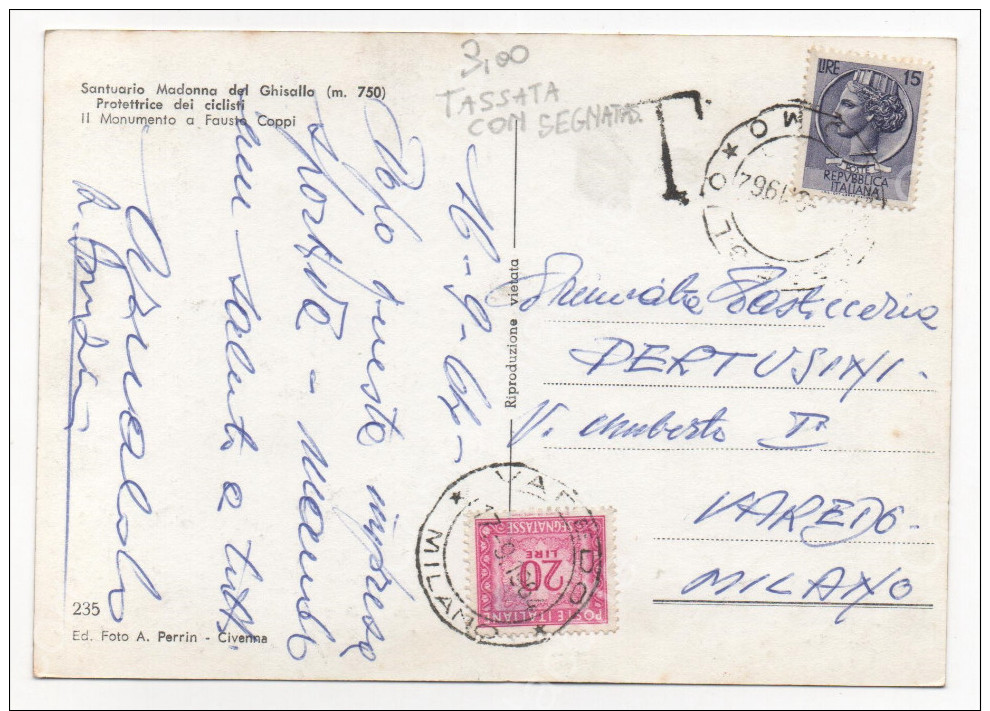 Santuario Madonna del Ghisallo (m. 750)
Protettrice dei ciclisti
Il Monumento a Fausto Coppi
3,00
TASSATA
CON SEGNATAS.
T
LIRE 15
POSTE
REPVBBLICA
ITALIANA
1964
16-9-64-
Dopo questa impresa
sportiva -
saluti a tutti
Reproduzione vietata
Pasticceria
PERTUSINI.
V. Umberto I°
VAREDO-
MILANO
VAREDO
MILANO
SEGNATASSE
LIRE
20
POSTE ITALIANE
235
Ed. Foto A. Perrin - Civenna